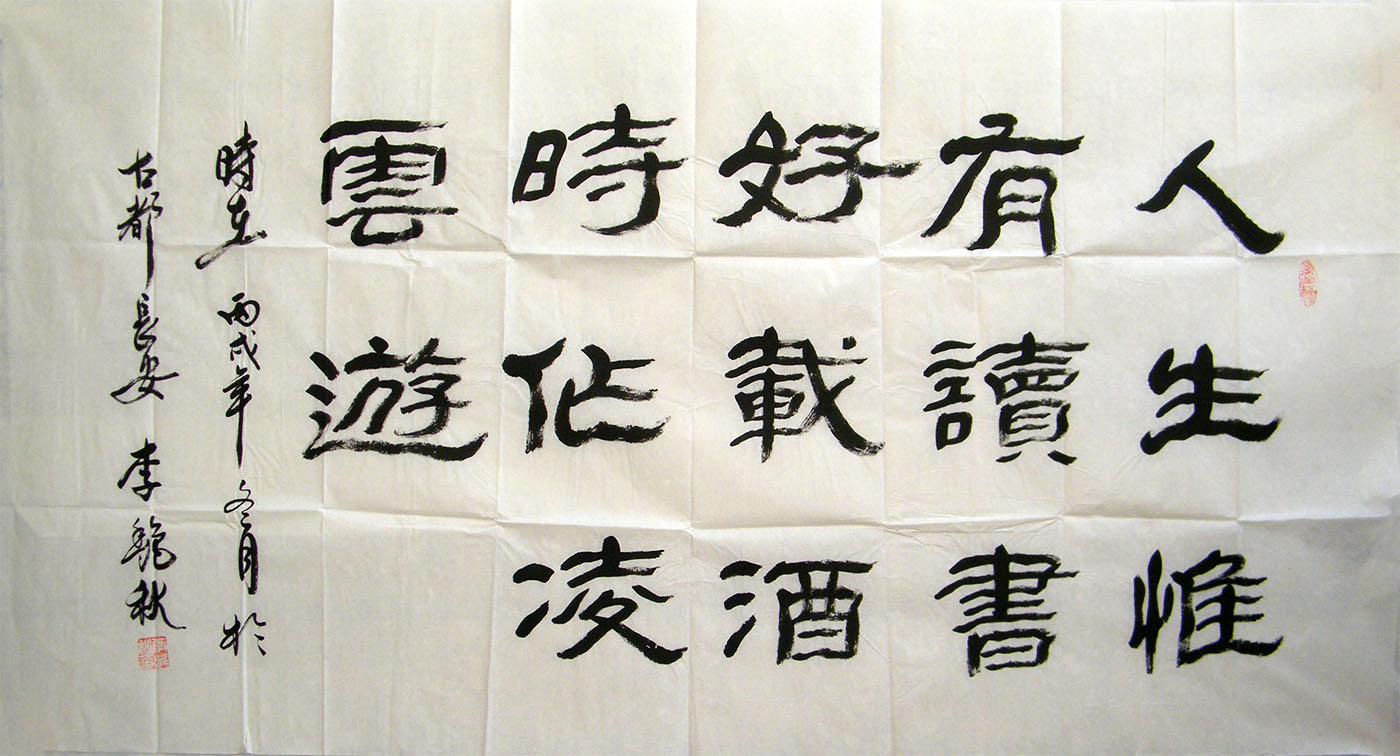 人生惟
有讀書
好載酒
時作凌
雲遊
時在丙戌年冬月於
古都長安李艷秋